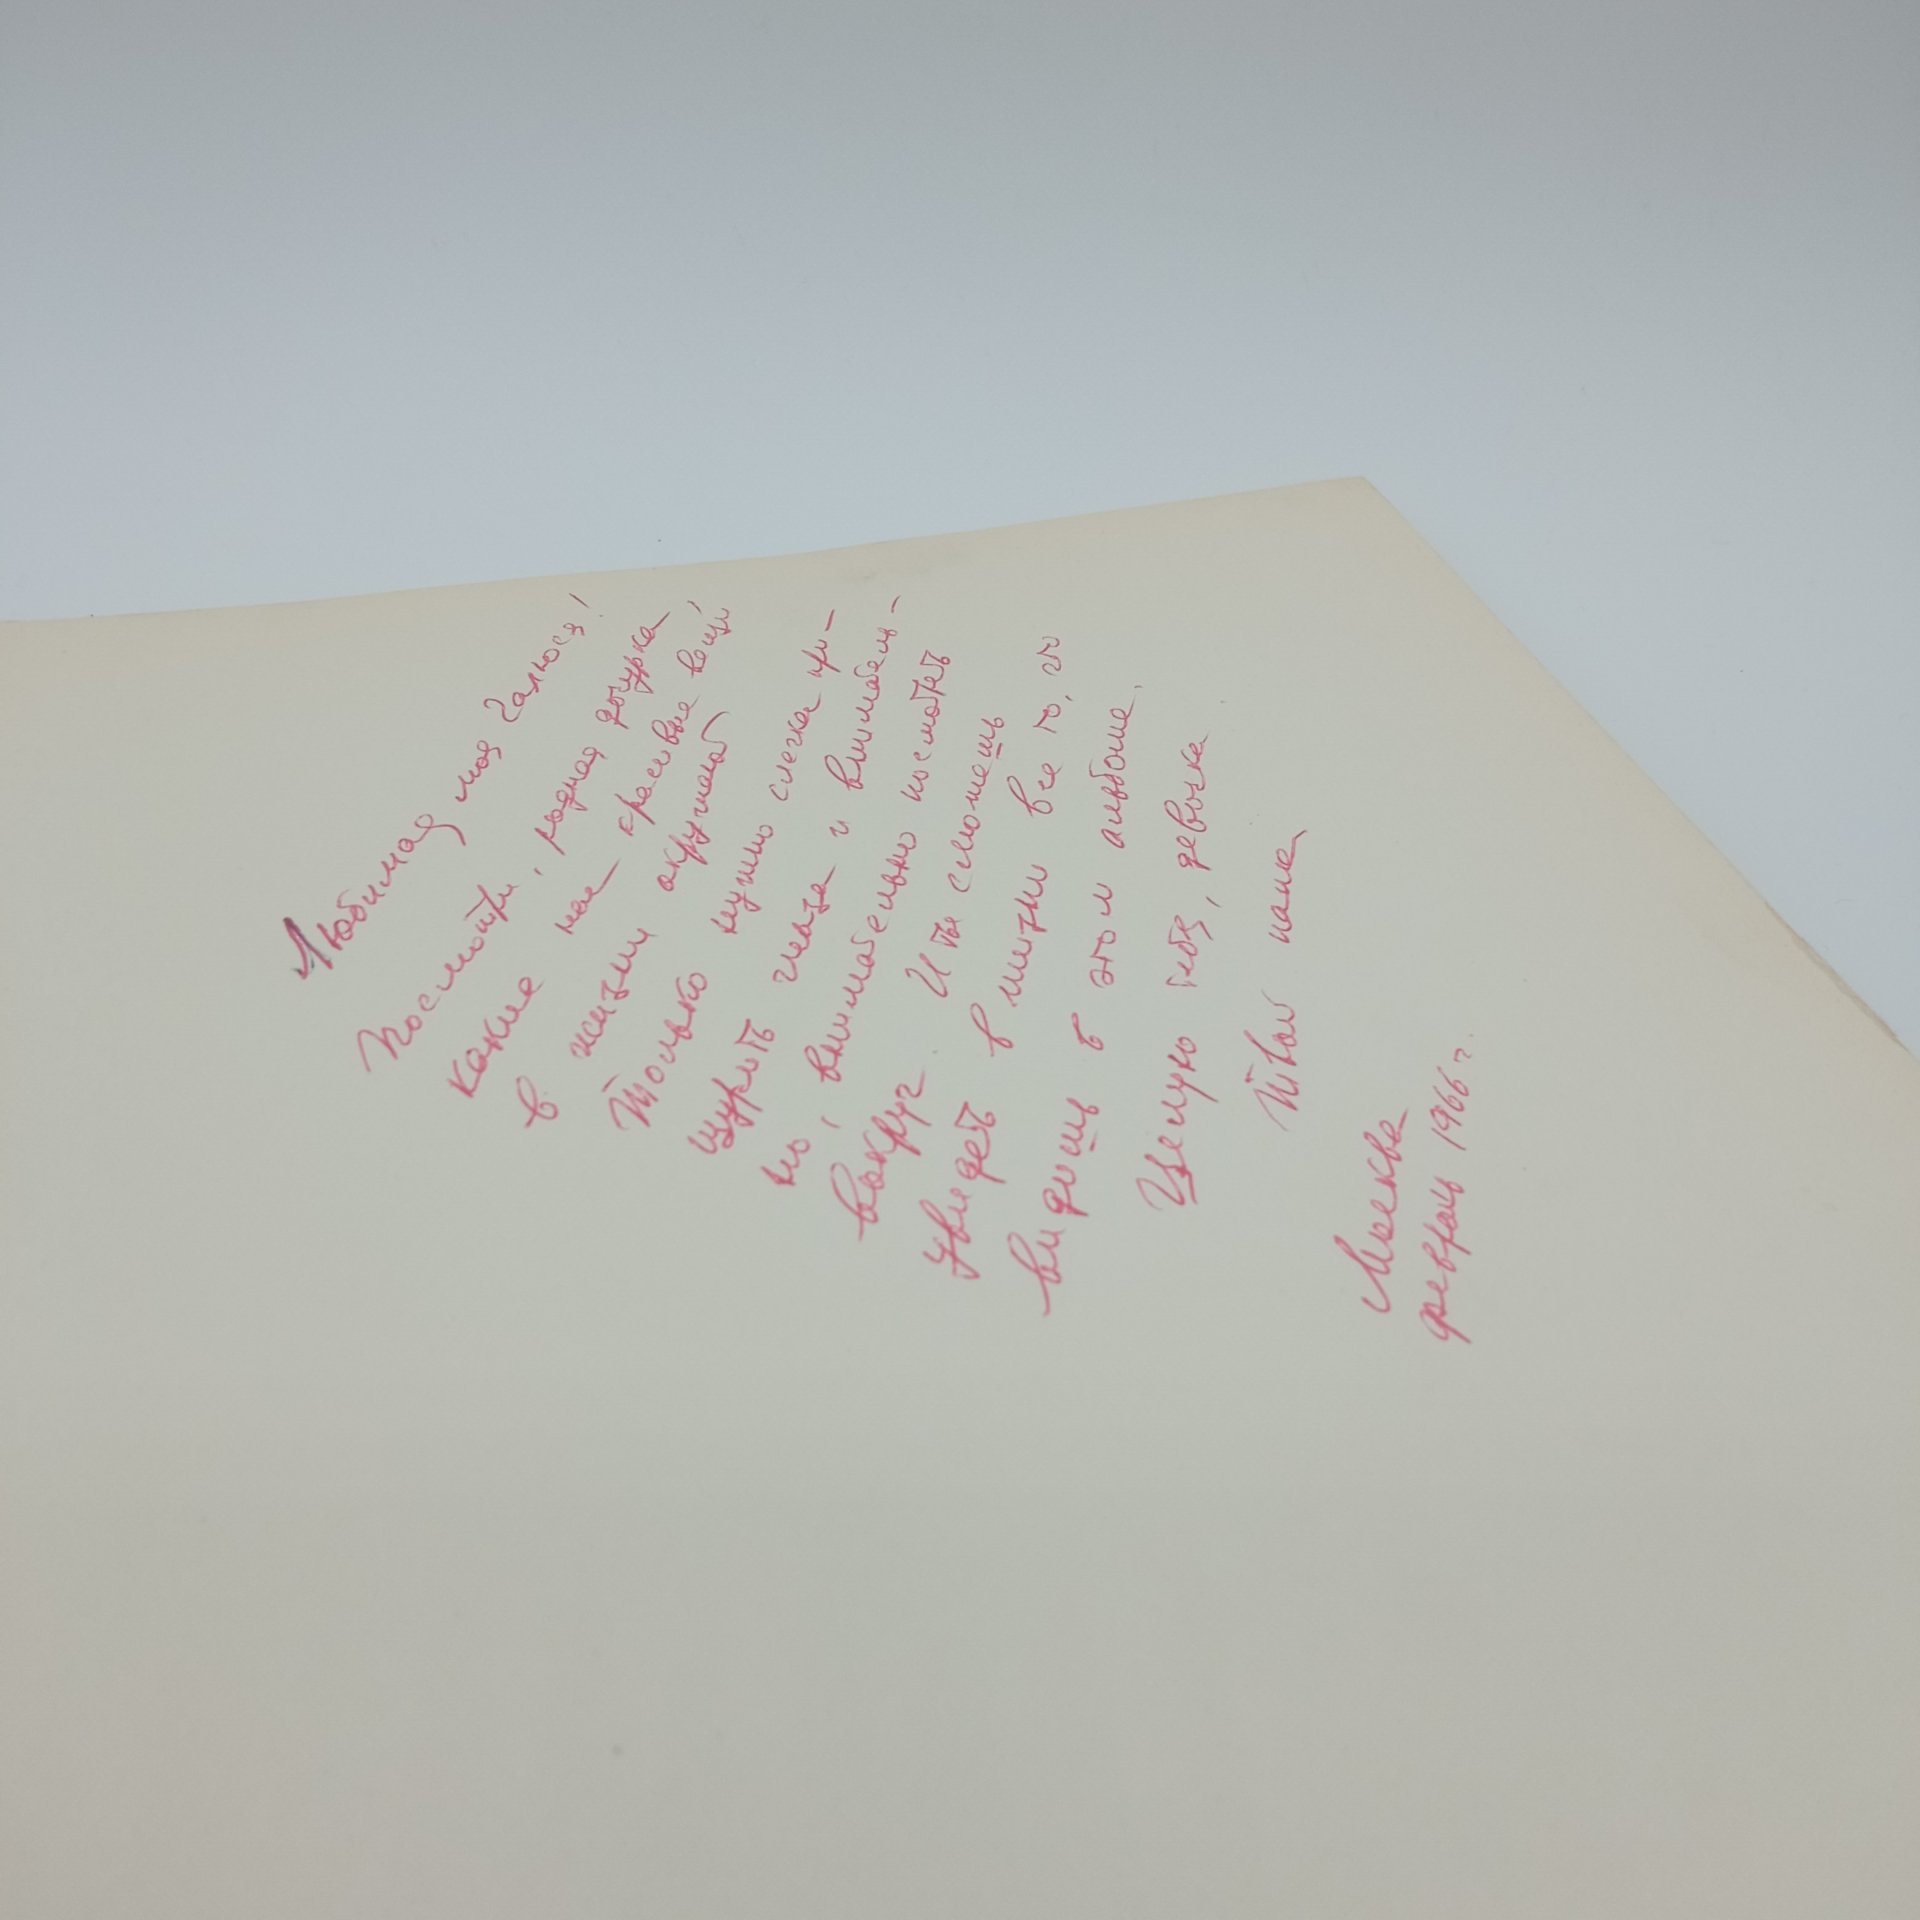 Любимая моя Галюся!
Посмотри, родная дочурка
какие нас красивые вещи
в жизни окружают
Только нужно слегка при-
щурить глаза и вниматель-
но, внимательно посмотреть
вокруг. И ты сможешь
увидеть в жизни все то, что
видишь в этом альбоме.
Целую тебя, девочка
Твой папа
Москва
февраль 1966 г.